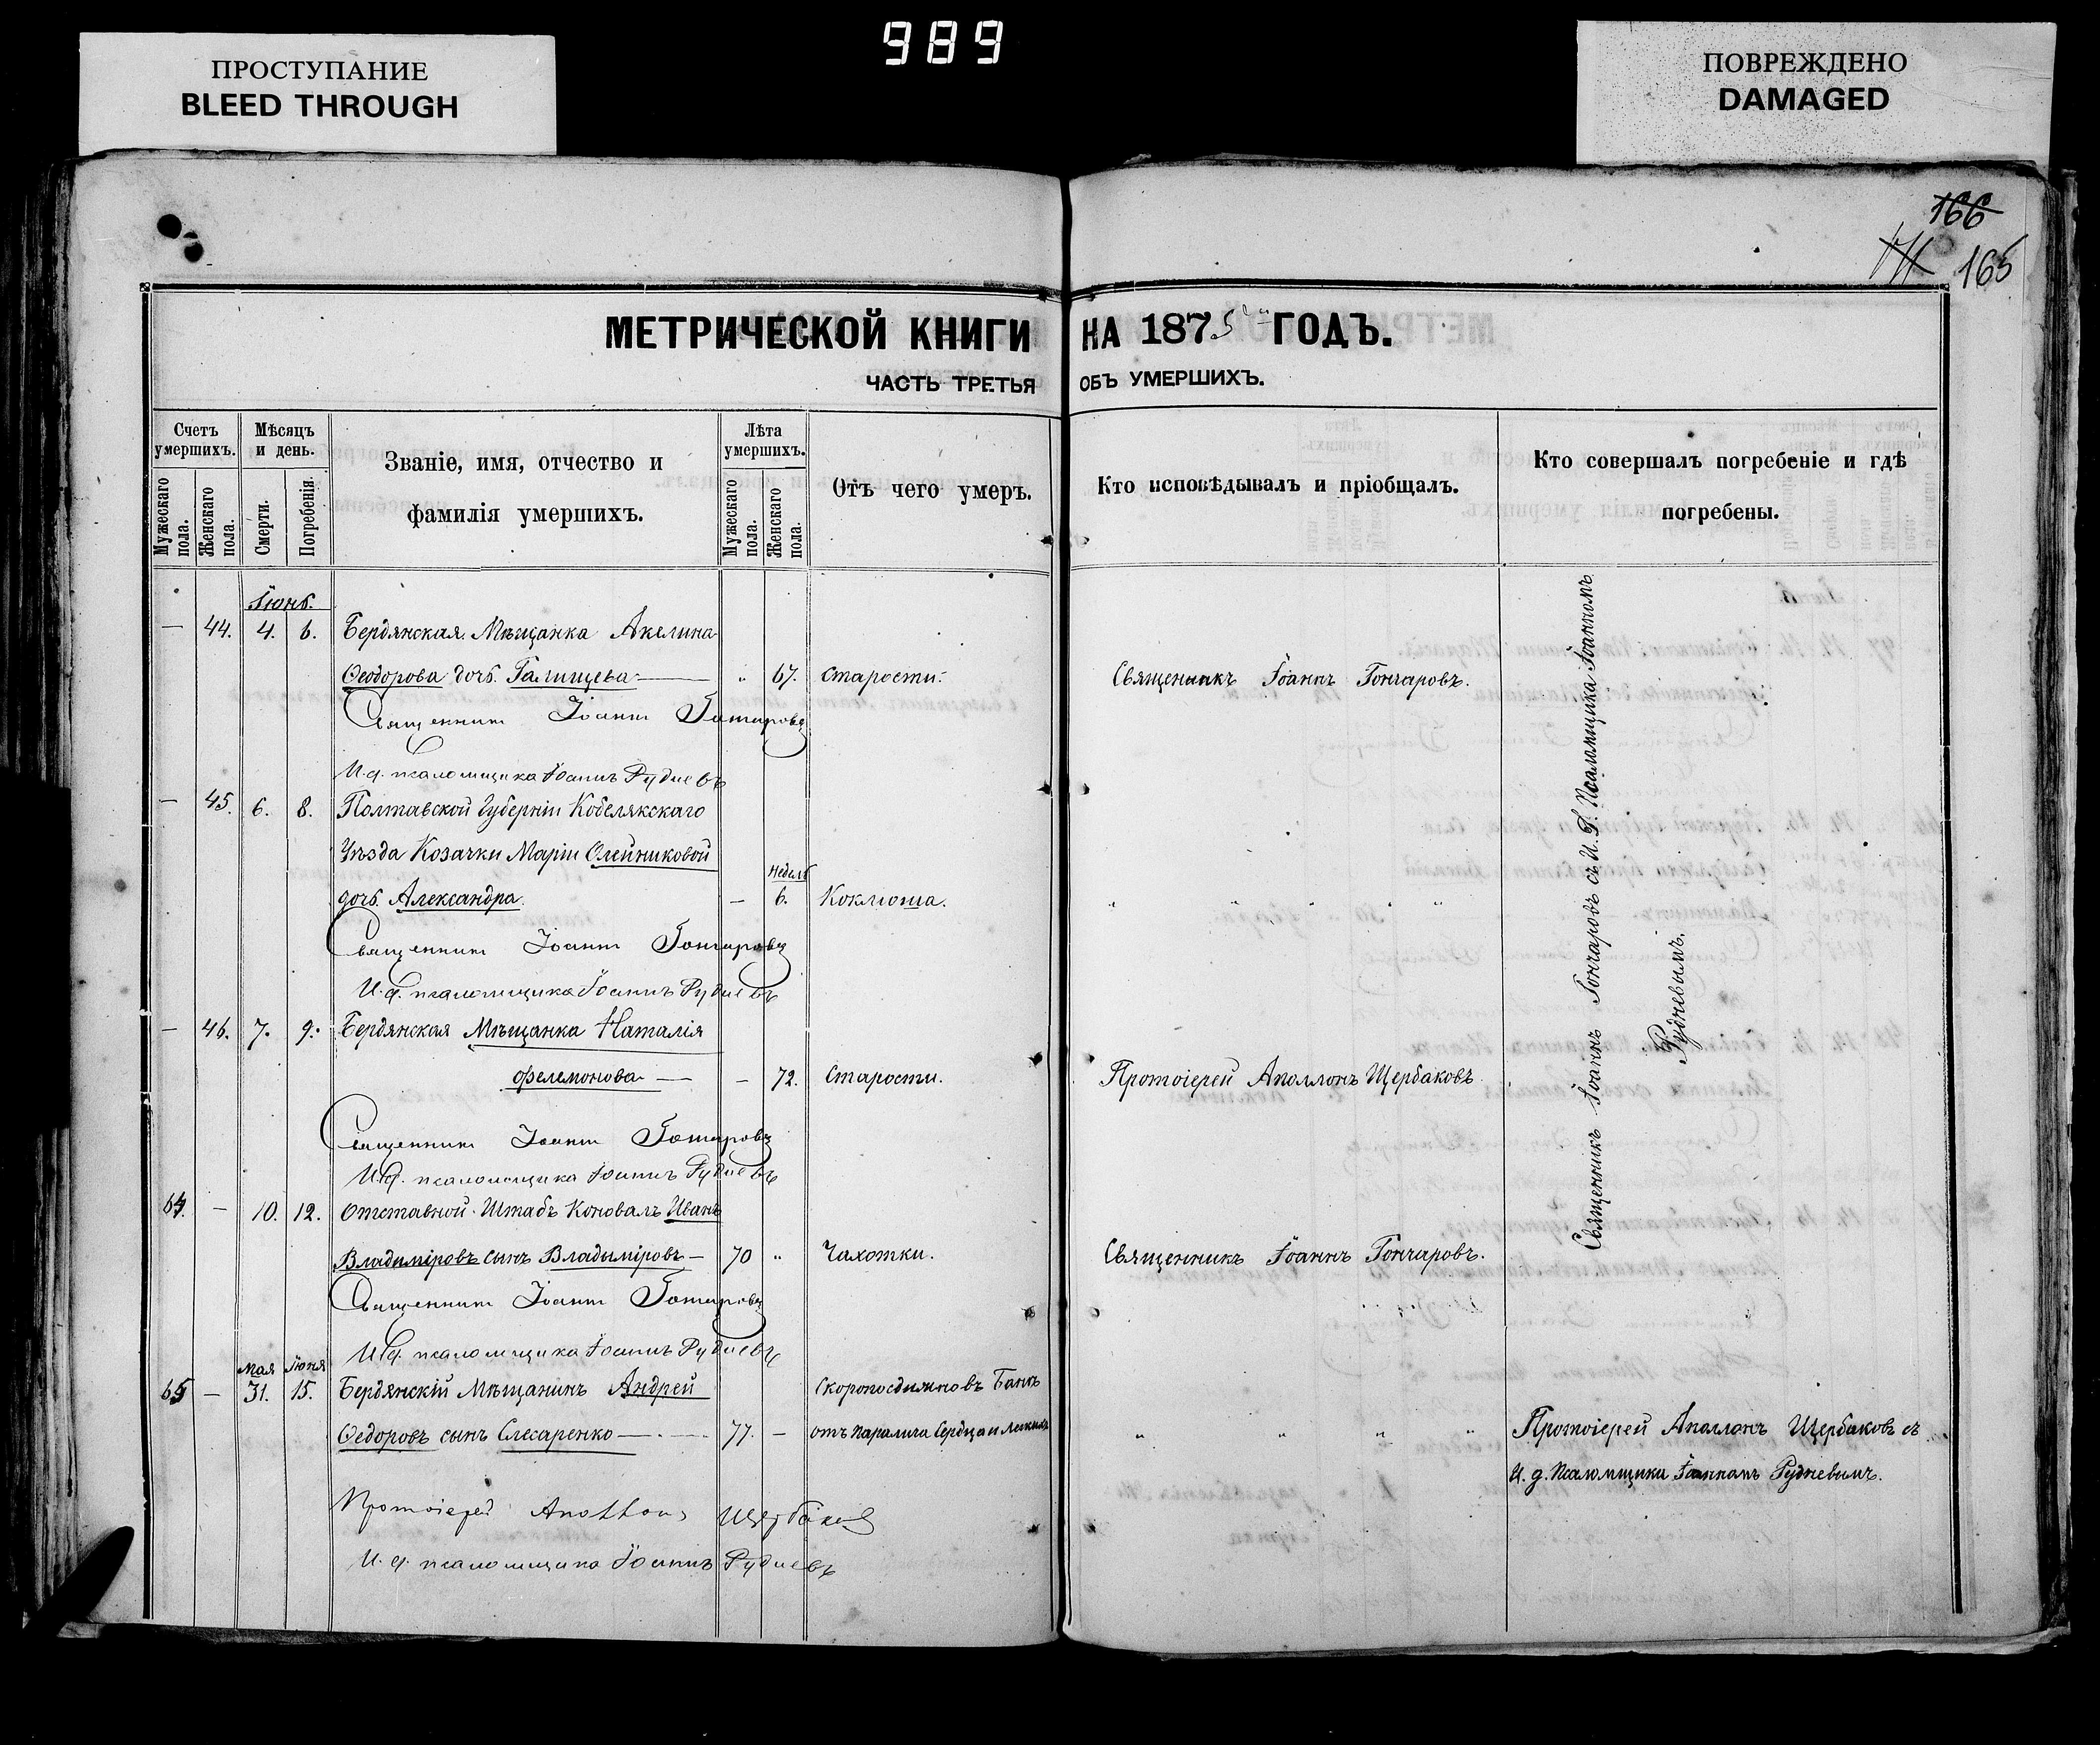 989
ПРОСТУПАНИЕ
BLEED THROUGH
ПОВРЕЖДЕНО
DAMAGED
166
171 165
МЕТРИЧЕСКОЙ КНИГИ НА 1875 ГОДЪ.
ЧАСТЬ ТРЕТЬЯ ОБЪ УМЕРШИХЪ.
Счетъ умершихъ.
Мужескаго пола.
Женскаго пола.
Мѣсяцъ и день.
Смерти.
Погребенія.
Званіе, имя, отчество и
фамилія умершихъ.
Лѣта умершихъ.
Мужескаго пола.
Женскаго пола.
Отъ чего умеръ.
Кто исповѣдывалъ и пріобщалъ.
Кто совершалъ погребеніе и гдѣ
погребены.
Іюнь.
— 44. 4. 6. Бердянская Мѣщанка Акелина
Ѳеодорова дочь Галищева — " 67. Старости. Священникъ Іоаннъ Гончаровъ.
Священникъ Іоаннъ Гончаровъ
И.д. псаломщика Іоаннъ Рудневъ
— 45. 6. 8. Полтавской Губерніи Кобелякскаго
Уѣзда Козачки Маріи Олейниковой
недѣль
дочь Александра. — 6. Коклюша. " " " " "
Священникъ Іоаннъ Гончаровъ
И.д. псаломщика Іоаннъ Рудневъ
— 46. 7. 9. Бердянская Мѣщанка Наталія
Филемонова — — 72. Старости. Протоіерей Аполлонъ Щербаковъ
Священникъ Іоаннъ Гончаровъ
И.д. псаломщика Іоаннъ Рудневъ
64. — 10. 12. Отставной Штабъ Коновалъ Иванъ
Владиміровъ сынъ Владыміровъ — 70 " Чахотки. Священникъ Іоаннъ Гончаровъ.
Священникъ Іоаннъ Гончаровъ
И.д. псаломщика Іоаннъ Рудневъ
Мая Іюня
65 — 31. 15. Бердянскій Мѣщанинъ Андрей Скоропостижно въ Банѣ
Ѳедоровъ сынъ Слесаренко — 77. — отъ паралича Сердца и Легкихъ " " " " Протоіерей Аполлонъ Щербаковъ съ
И. д. Псаломщика Іоанномъ Рудневымъ.
Протоіерей Аполлонъ Щербаковъ
И. д. псаломщика Іоаннъ Рудневъ
Священникъ Іоаннъ Гончаровъ съ И. Д. Псаломщика Іоанномъ
Рудневымъ.